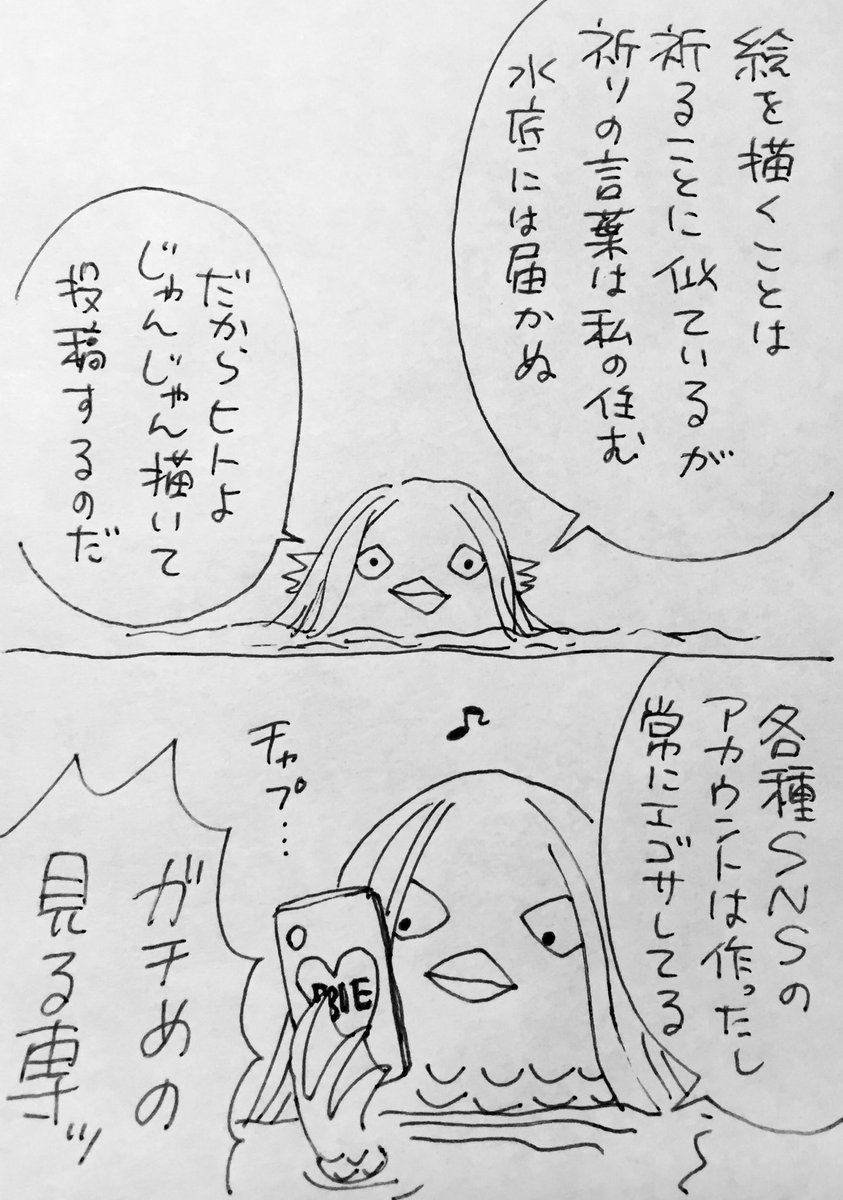 絵を描くことは
祈ることに似ているが
祈りの言葉は私の住む
水底には届かぬ
だからヒトよ
じゃんじゃん描いて
投稿するのだ
各種SNSの
アカウントは作ったし
常にエゴサしてる
チャプ…
ガチめの
見る専ッ